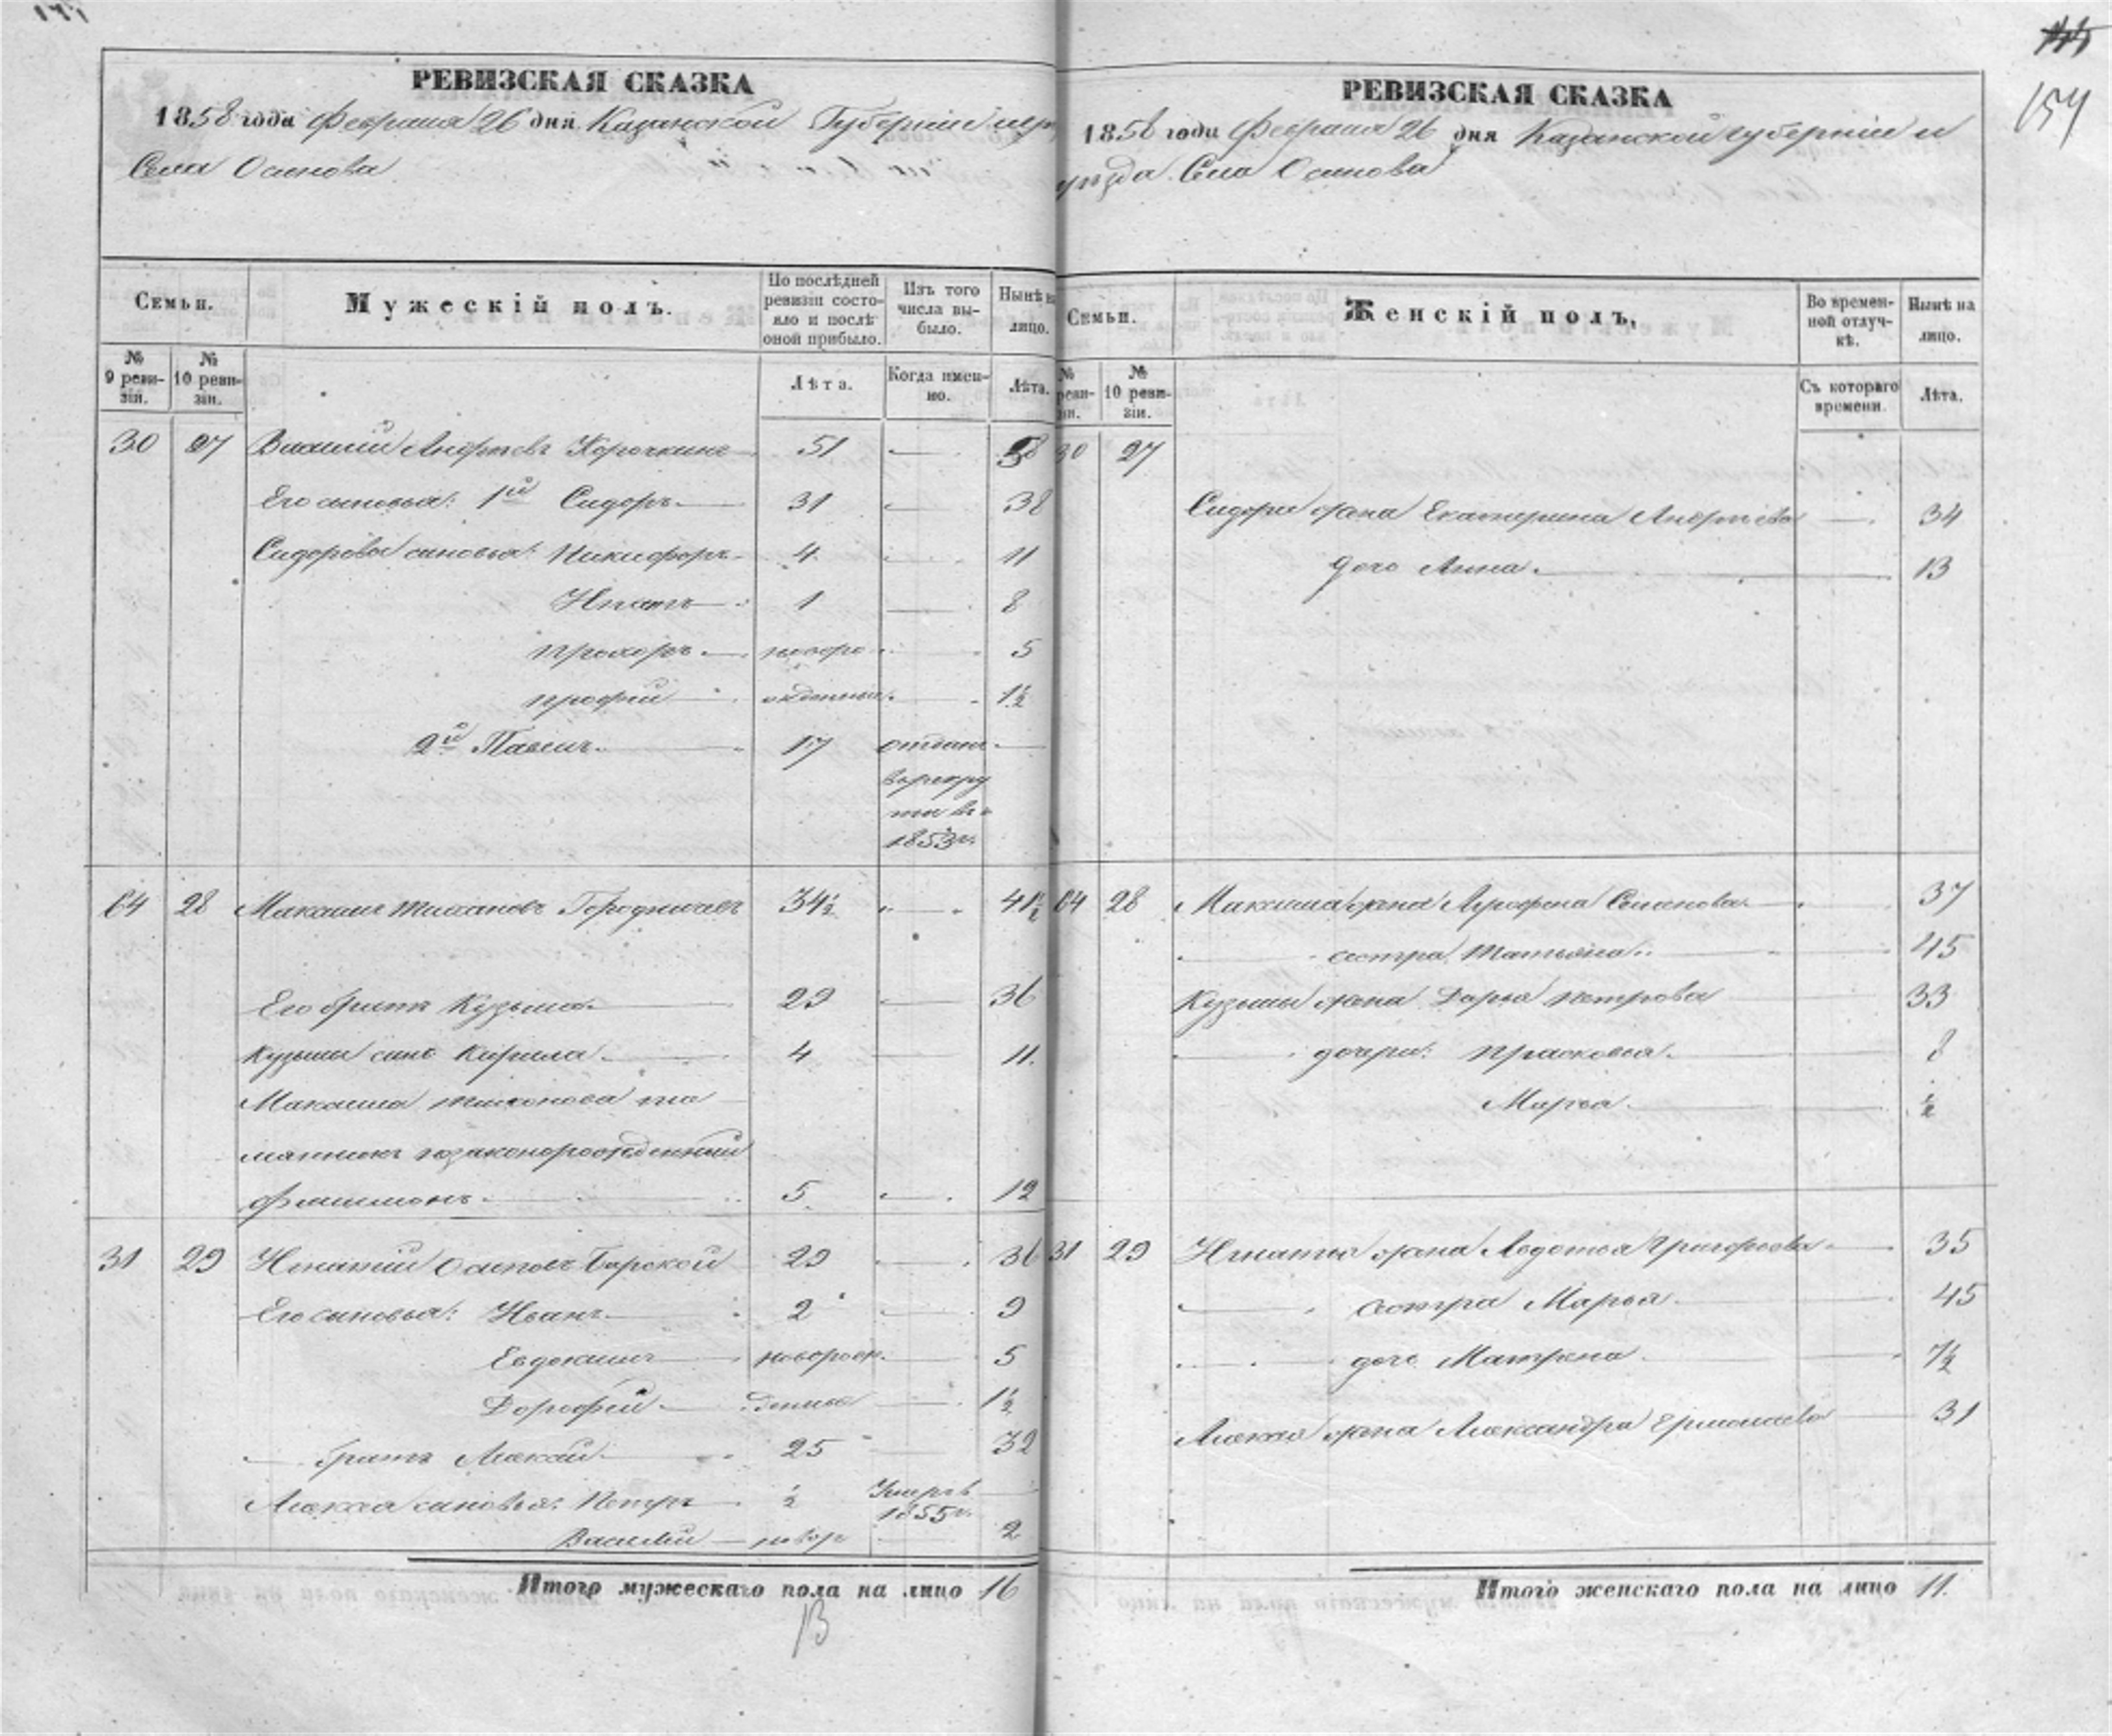 РЕВИЗСКАЯ СКАЗКА
1858 года Февраля 26 дня Казанской Губернiи
Села Осинова
Семьи.
Мужескiй полъ.
По послѣдней ревизiи состояло и послѣ оной прибыло.
Изъ того числа выбыло.
Нынѣ на лицо.
№ 9 ревизiи.
№ 10 ревизiи.
Лѣта.
Когда именно.
Лѣта.
30 27 Василiй Андреевъ Корочкинъ 51 — 58
Его сыновья: 1й Сидоръ 31 — 38
Сидоровы сыновья: Никифоръ 4 — 11
Игнатъ 1 — 8
Прохоръ новоро 5
Профiй жденные 1½
2й Павелъ 17 отданъ —
въ рекру
ты въ
1853 г.
64 28 Максимъ Тихановъ Городничевъ 34½ — 41½
Его братъ Кузьма 29 — 36
Кузьмы сынъ Кирила 4 — 11.
Максима Тихонова пле
мянникъ незаконорожденный
Филимонъ 5 — 12
31 29 Игнатiй Осиповъ Барской 29 — 36
Его сыновья: Иванъ 2 — 9
Евдокимъ новорож 5
Дорофей денные 1½
братъ Алексѣй 25 — 32
Алексѣя сыновья: Петръ ½ Умеръ в —
1855 г.
Василiй новор — 2
Итого мужескаго пола на лицо 16
13
154
РЕВИЗСКАЯ СКАЗКА
1858 года Февраля 26 дня Казанской губернiи и
уѣзда Села Осинова
Семьи.
Женскiй полъ,
Во временной отлучкѣ.
Нынѣ на лицо.
№ реви-зiи.
№ 10 ревизiи.
Съ котораго времени.
Лѣта.
30 27
Сидора жена Екатерина Андреева — 34
дочь Анна. — 13
64 28 Максима жена Аграфена Семенова — 37
сестра Татьяна — 45
Кузьмы жена Дарья Петрова — 33
дочери: Прасковья. — 8
Марья. — ½
31 29 Игнатья жена Авдотья Григорьева — 35
сестра Марья — 45
дочь Матрена — 7½
Алексѣя жена Александра Ермолаева — 31
Итого женскаго пола на лицо 11.